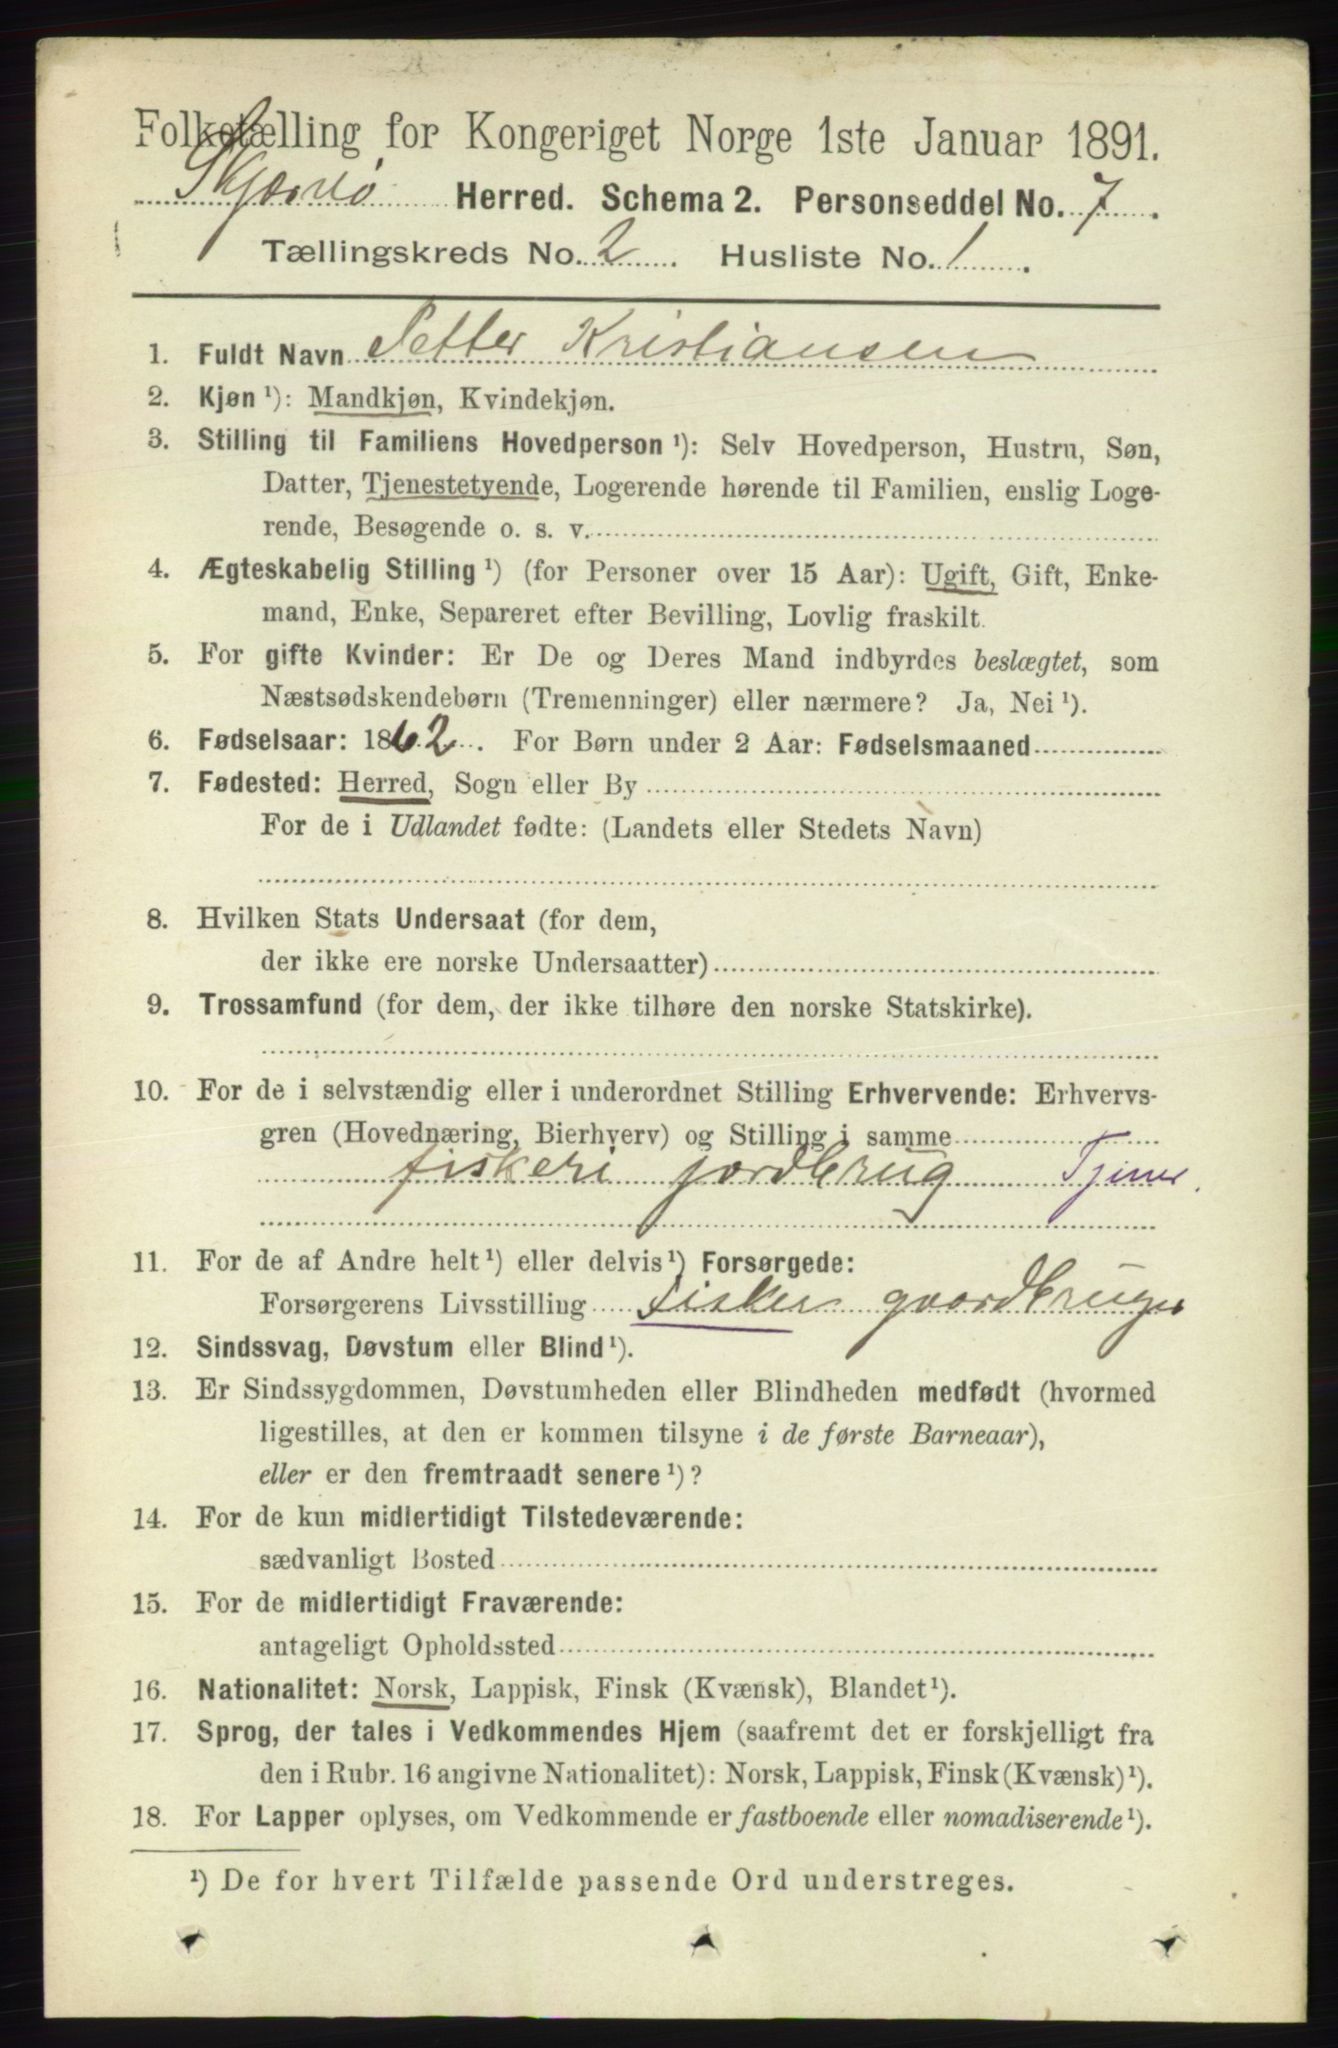 Folketælling for Kongeriget Norge 1ste Januar 1891.
Skjærvø Herred. Schema 2. Personseddel No. 7.
Tællingskreds No. 2. Husliste No. 1.
1. Fuldt Navn Petter Kristiansen
2. Kjøn ¹): Mandkjøn, Kvindekjøn.
3. Stilling til Familiens Hovedperson ¹): Selv Hovedperson, Hustru, Søn,
Datter, Tjenestetyende, Logerende hørende til Familien, enslig Loge-
rende, Besøgende o. s. v.
4. Ægteskabelig Stilling ¹) (for Personer over 15 Aar): Ugift, Gift, Enke-
mand, Enke, Separeret efter Bevilling, Lovlig fraskilt.
5. For gifte Kvinder: Er De og Deres Mand indbyrdes beslægtet, som
Næstsødskendebørn (Tremenninger) eller nærmere? Ja, Nei ¹).
6. Fødselsaar: 1862. For Børn under 2 Aar: Fødselsmaaned
7. Fødested: Herred, Sogn eller By
For de i Udlandet fødte: (Landets eller Stedets Navn)
8. Hvilken Stats Undersaat (for dem,
der ikke ere norske Undersaatter)
9. Trossamfund (for dem, der ikke tilhøre den norske Statskirke).
10. For de i selvstændig eller i underordnet Stilling Erhvervende: Erhvervs-
gren (Hovednæring, Bierhverv) og Stilling i samme
fiskeri jordbrug Tjener
11. For de af Andre helt ¹) eller delvis ¹) Forsørgede:
Forsørgerens Livsstilling Fisker gaardbruger
12. Sindssvag, Døvstum eller Blind ¹).
13. Er Sindssygdommen, Døvstumheden eller Blindheden medfødt (hvormed
ligestilles, at den er kommen tilsyne i de første Barneaar),
eller er den fremtraadt senere ¹)?
14. For de kun midlertidigt Tilstedeværende:
sædvanligt Bosted
15. For de midlertidigt Fraværende:
antageligt Opholdssted
16. Nationalitet: Norsk, Lappisk, Finsk (Kvænsk), Blandet ¹).
17. Sprog, der tales i Vedkommendes Hjem (saafremt det er forskjelligt fra
den i Rubr. 16 angivne Nationalitet): Norsk, Lappisk, Finsk (Kvænsk) ¹).
18. For Lapper oplyses, om Vedkommende er fastboende eller nomadiserende ¹).
¹) De for hvert Tilfælde passende Ord understreges.